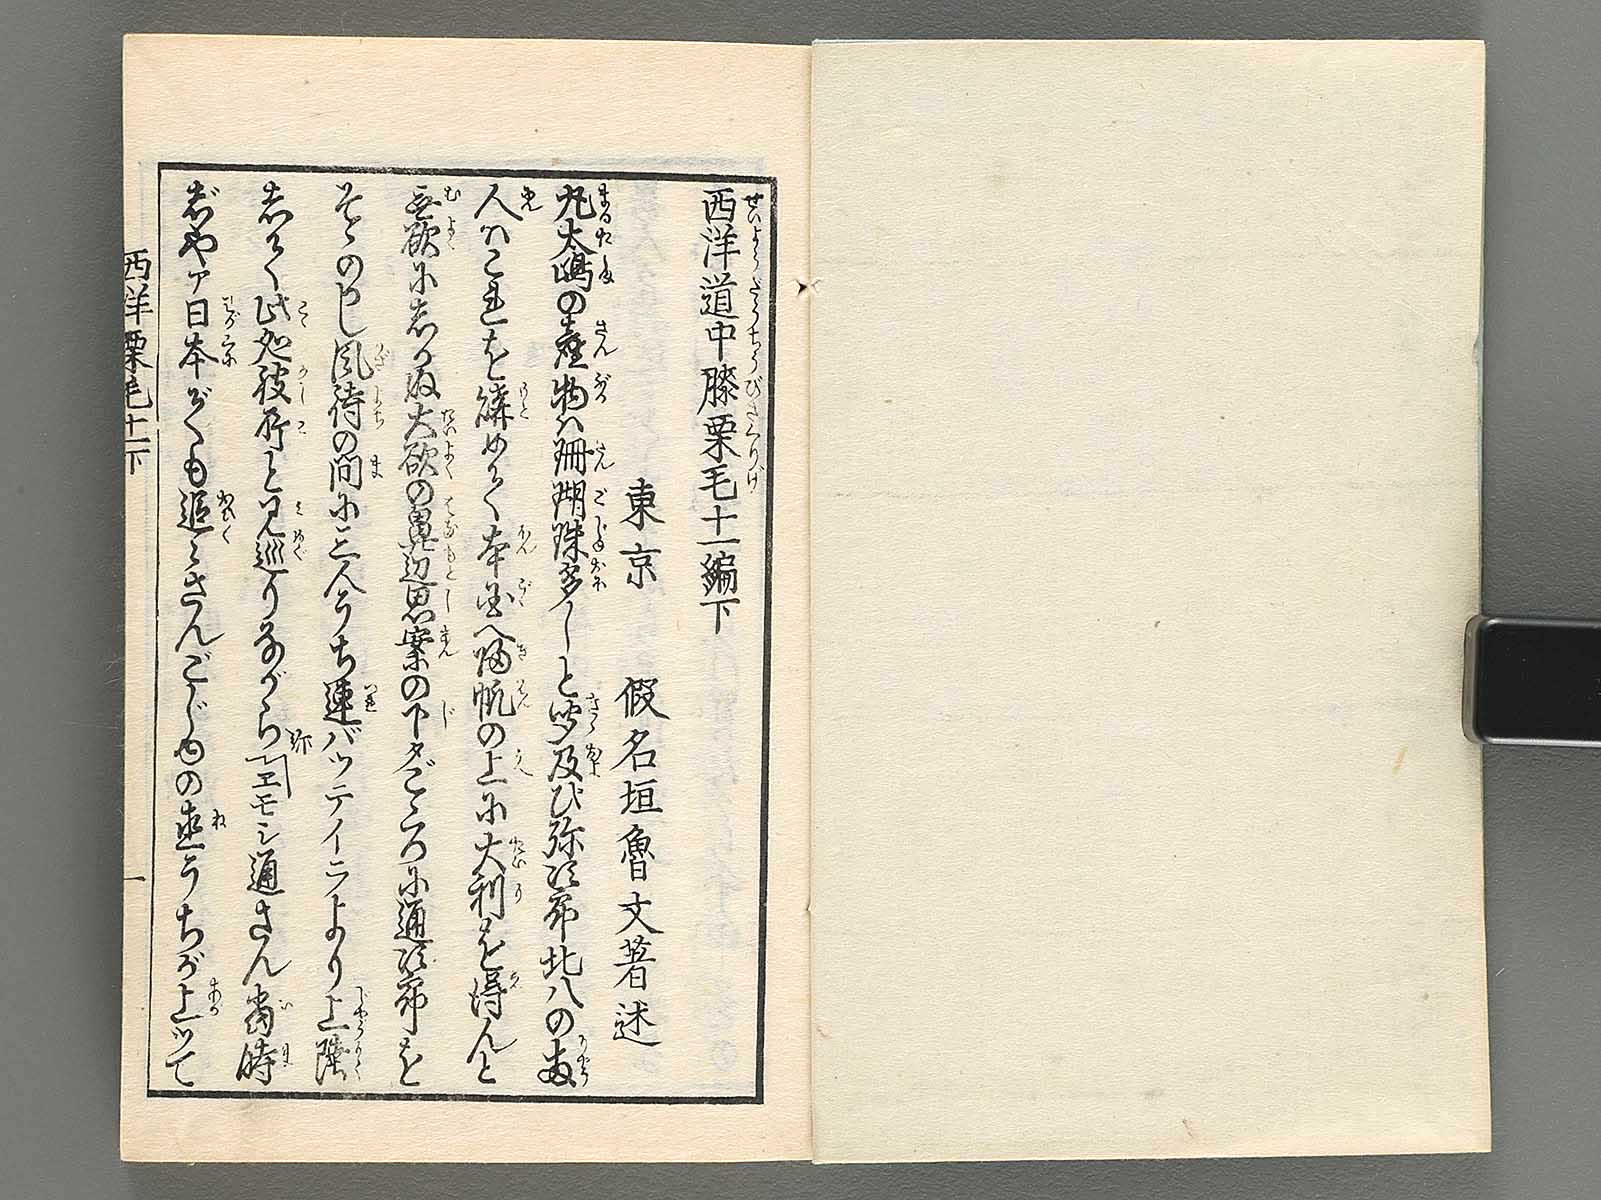 西洋道中膝栗毛十一編下
東京 假名垣魯文著述
丸太嶋の産物ハ珊瑚珠多しと皆及び弥次郎北八の両
人ハこれを購めて本国へ帰帆の上に大利を得んと
無欲にあらぬ大欲の鼻元思案の下タごゝろに通次郎を
そゝのかし風待の間に三人うち連バッテイニより上陸
して此処彼所と見巡りながら弥「エモシ通さん当時
じやア日本がへも追々さんごじゆの直うちが上ッて
西洋栗毛十一下
一